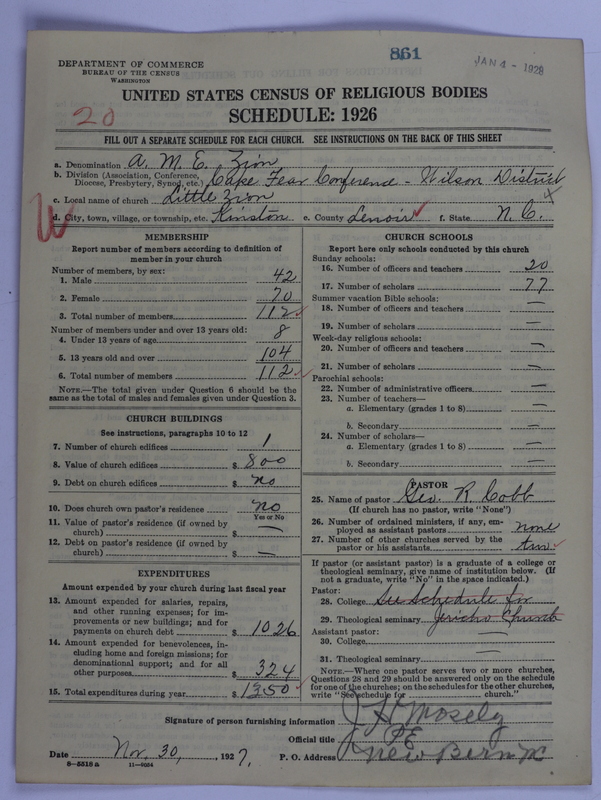 861
JAN 4 - 1928
DEPARTMENT OF COMMERCE
BUREAU OF THE CENSUS
WASHINGTON
UNITED STATES CENSUS OF RELIGIOUS BODIES
SCHEDULE: 1926
20
FILL OUT A SEPARATE SCHEDULE FOR EACH CHURCH. SEE INSTRUCTIONS ON THE BACK OF THIS SHEET
a. Denomination A. M. E. Zion
b. Division (Association, Conference, Diocese, Presbytery, Synod, etc.) Cape Fear Conference - Wilson District
c. Local name of church Little Zion
d. City, town, village, or township, etc. Kinston e. County Lenoir f. State N. C.
MEMBERSHIP
Report number of members according to definition of
member in your church
Number of members, by sex:
1. Male 42
2. Female 70
3. Total number of members 112
Number of members under and over 13 years old:
4. Under 13 years of age 8
5. 13 years old and over 104
6. Total number of members 112
NOTE.—The total given under Question 6 should be
same as the total of males and females given under Question 3.
CHURCH BUILDINGS
See instructions, paragraphs 10 to 12
7. Number of church edifices 1
8. Value of church edifices $ 800
9. Debt on church edifices $ No
10. Does church own pastor's residence No
Yes or No
11. Value of pastor's residence (if owned by
church) $ —
12. Debt on pastor's residence (if owned by
church) $ —
EXPENDITURES
Amount expended by your church during last fiscal year
13. Amount expended for salaries, repairs,
and other running expenses; for im-
provements or new buildings; and for
payments on church debt $ 1026
14. Amount expended for benevolences, in-
cluding home and foreign missions; for
denominational support; and for all
other purposes $ 324
15. Total expenditures during year $ 1350
CHURCH SCHOOLS
Report here only schools conducted by this church
Sunday schools:
16. Number of officers and teachers 20
17. Number of scholars 77
Summer vacation Bible schools:
18. Number of officers and teachers —
19. Number of scholars —
Week-day religious schools:
20. Number of officers and teachers —
21. Number of scholars —
Parochial schools:
22. Number of administrative officers —
23. Number of teachers—
a. Elementary (grades 1 to 8) —
b. Secondary —
24. Number of scholars—
a. Elementary (grades 1 to 8) —
b. Secondary —
PASTOR
25. Name of pastor Geo. R. Cobb
(If church has no pastor, write "None")
26. Number of ordained ministers, if any, em-
ployed as assistant pastors none
27. Number of other churches served by the
pastor or his assistants
If pastor (or assistant pastor) is a graduate of a college or
theological seminary, give name of institution below. (If
not a graduate, write "No" in the space indicated.)
Pastor:
28. College See Schedule for
29. Theological seminary Jericho Church
Assistant pastor:
30. College —
31. Theological seminary —
NOTE.—Where one pastor serves two or more churches,
Questions 28 and 29 should be answered only on the schedule
for one of the churches; on the schedules for the other churches,
write "See schedule for church."
Signature of person furnishing information J. H. Mosely
Official title P E
Date Nov. 30, 1927. P. O. Address New Bern NC
8-5318 a 11-9064